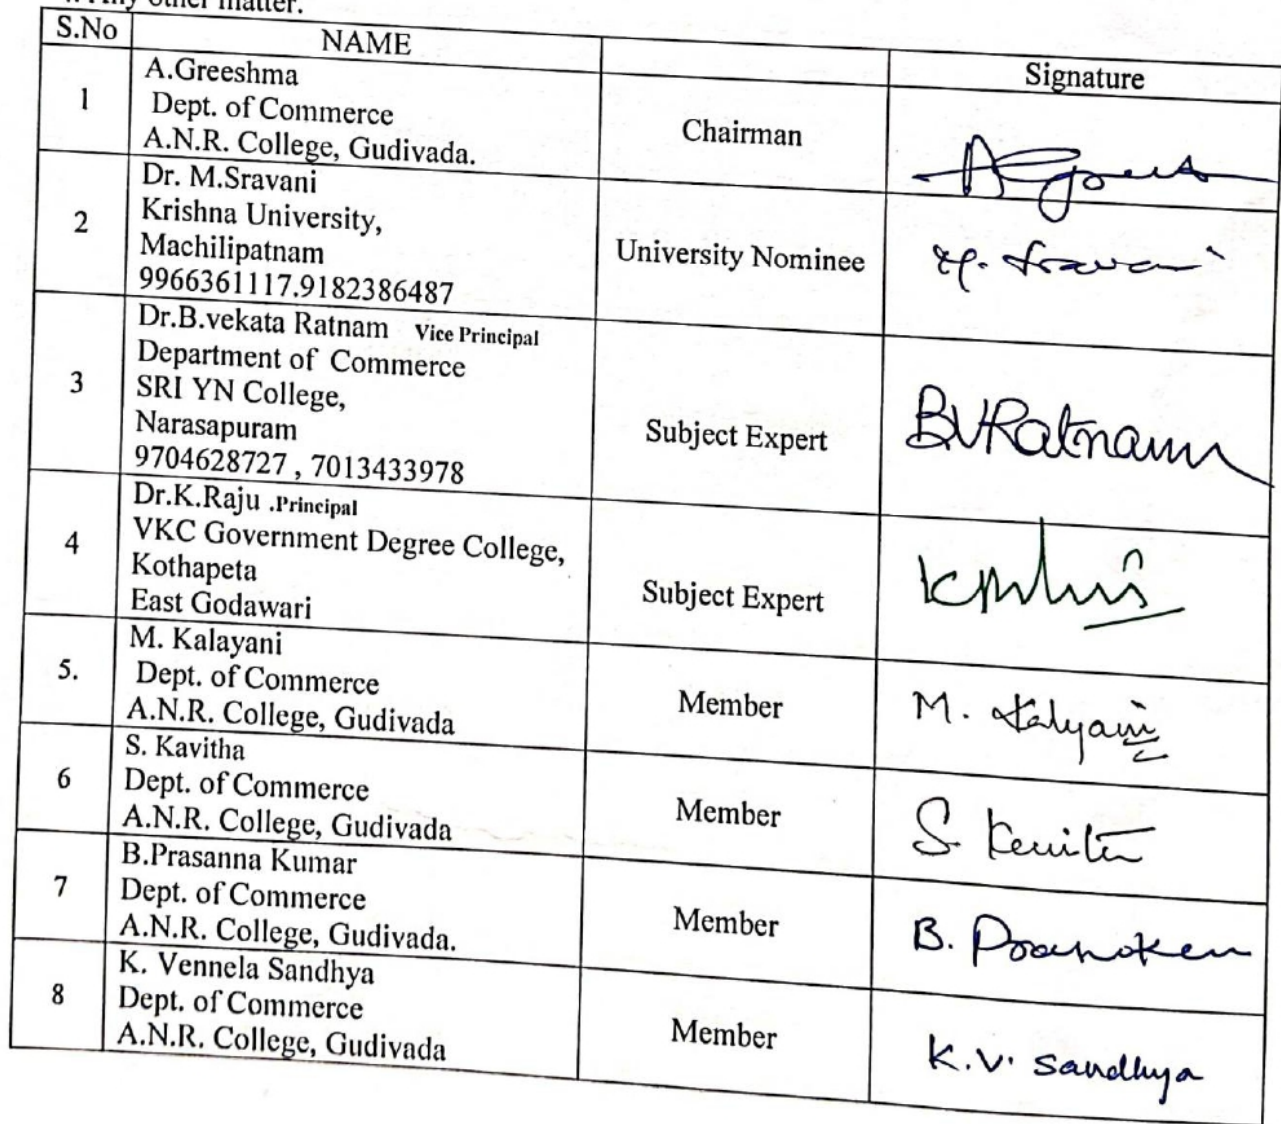 Any other matter.
S.No NAME Signature
1
A.Greeshma
Dept. of Commerce
A.N.R. College, Gudivada.
Chairman
2
Dr. M.Sravani
Krishna University,
Machilipatnam
9966361117.9182386487
University Nominee
M. Sravani
3
Dr.B.vekata Ratnam Vice Principal
Department of Commerce
SRI YN College,
Narasapuram
9704628727 , 7013433978
Subject Expert
B.V.Ratnam
4
Dr.K.Raju .Principal
VKC Government Degree College,
Kothapeta
East Godawari
Subject Expert
5.
M. Kalayani
Dept. of Commerce
A.N.R. College, Gudivada
Member
M. Kalyani
6
S. Kavitha
Dept. of Commerce
A.N.R. College, Gudivada
Member
S.
7
B.Prasanna Kumar
Dept. of Commerce
A.N.R. College, Gudivada.
Member
B.
8
K. Vennela Sandhya
Dept. of Commerce
A.N.R. College, Gudivada
Member
K.V. Sandhya